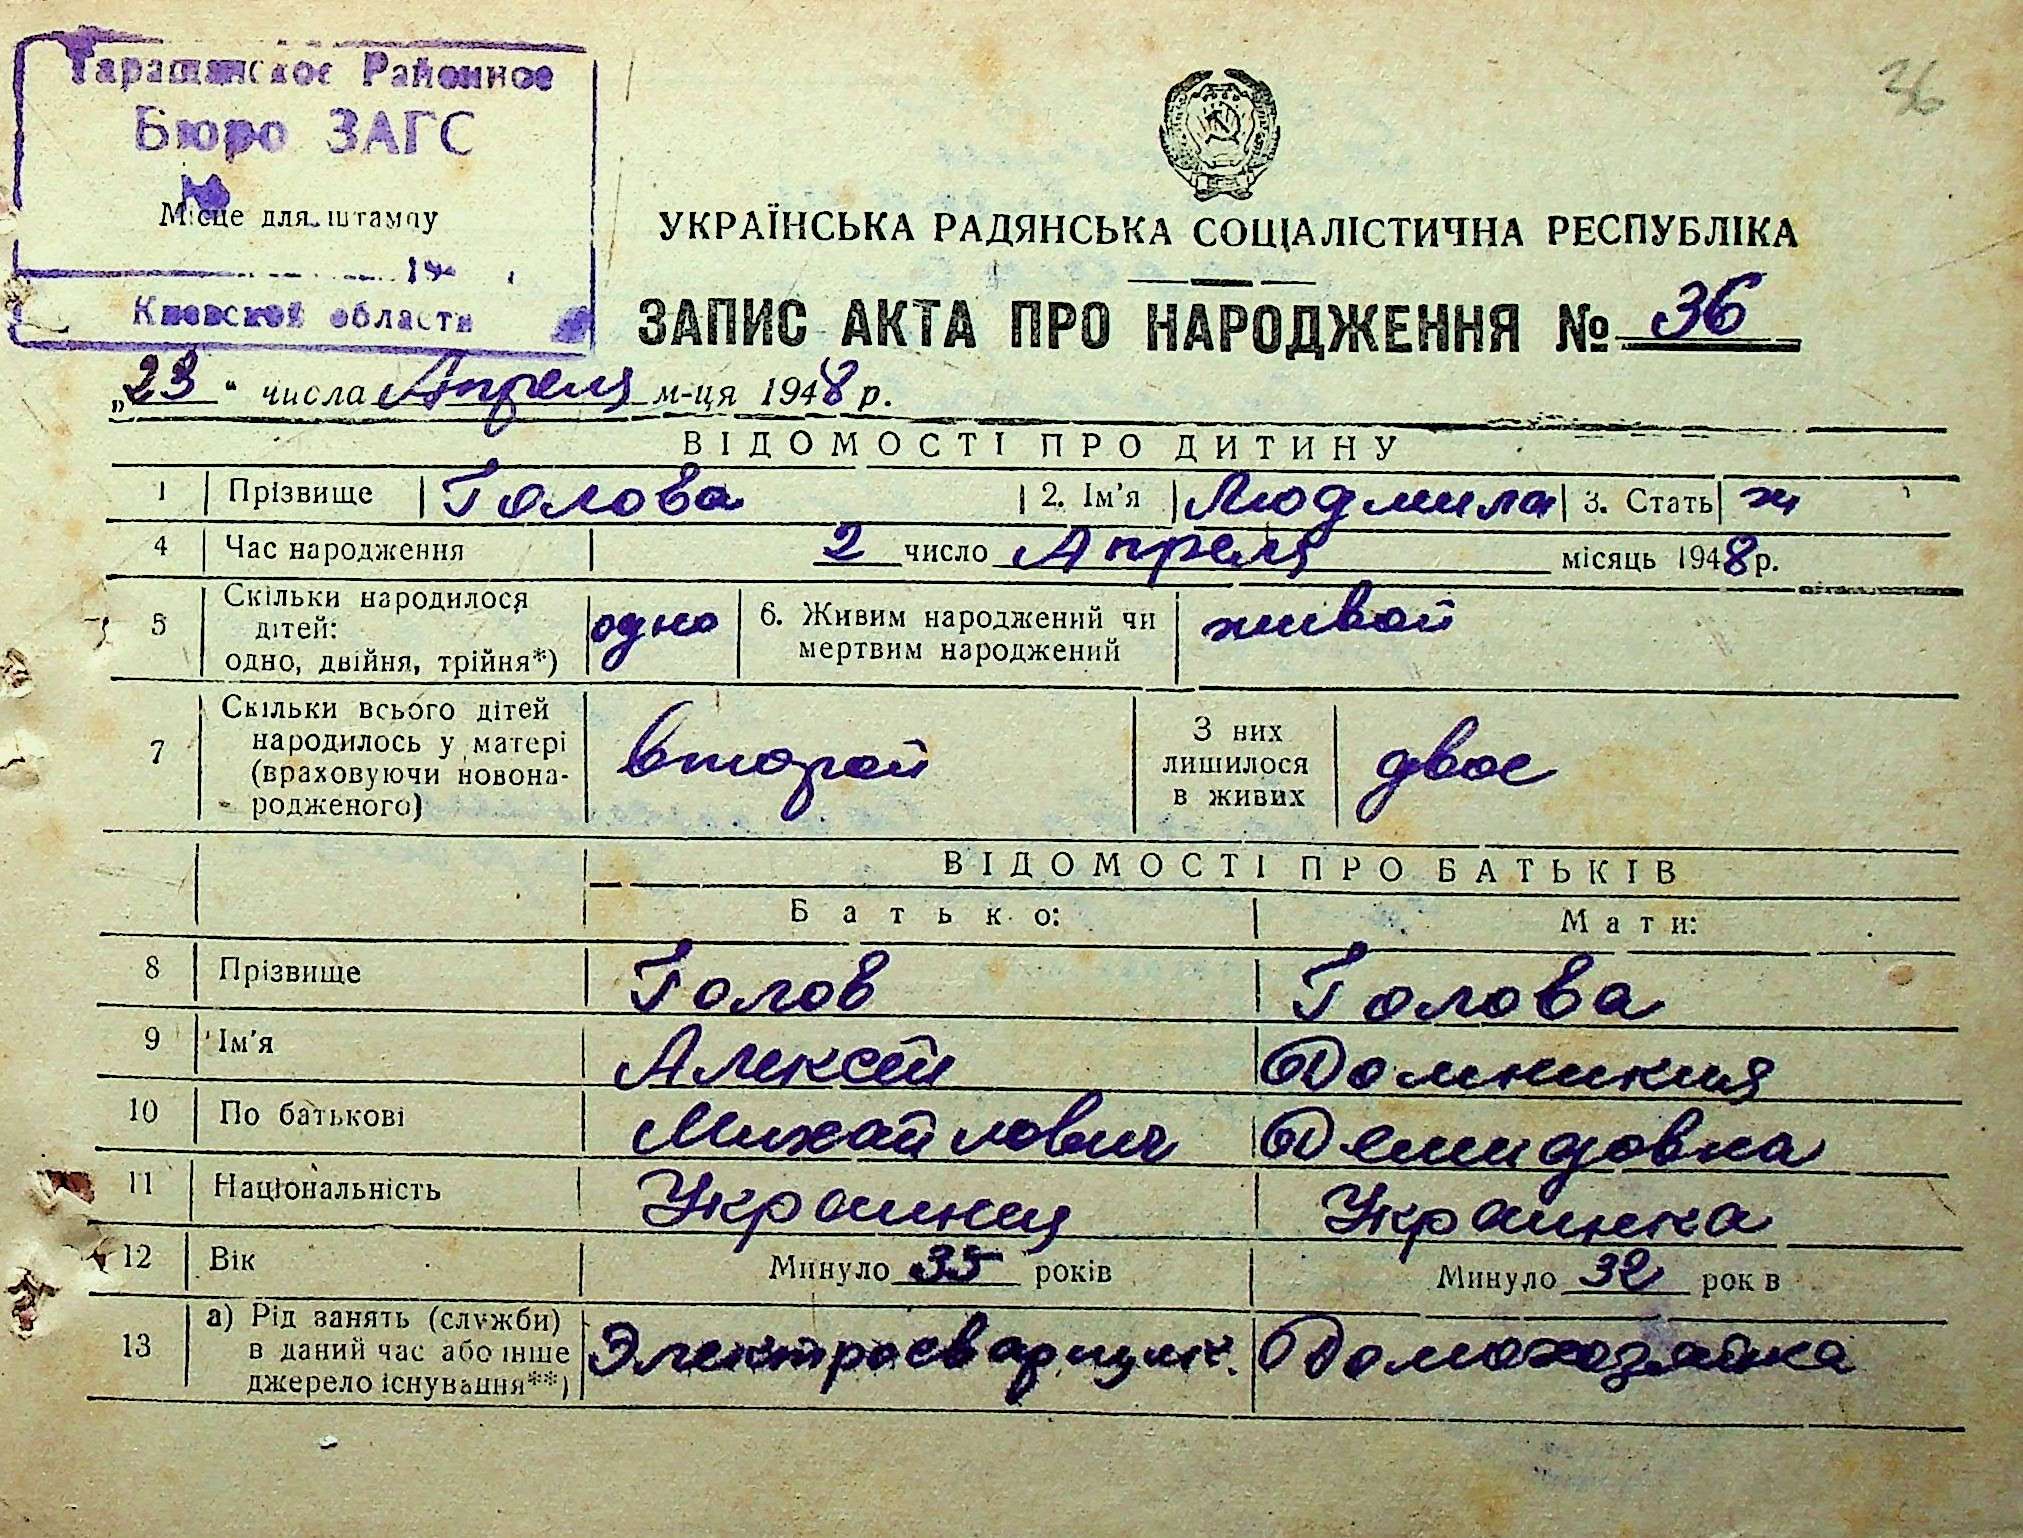 36
Таращанское Районное
Бюро ЗАГС
№
Місце для штампу
19
Киевской области
УКРАЇНСЬКА РАДЯНСЬКА СОЦІАЛІСТИЧНА РЕСПУБЛІКА
ЗАПИС АКТА ПРО НАРОДЖЕННЯ № 36
„23“ числа Апреля м-ця 1948 р.
ВІДОМОСТІ ПРО ДИТИНУ
1 Прізвище Голова 2. Ім'я Людмила 3. Стать ж
4 Час народження 2 число Апреля місяць 1948 р.
5 Скільки народилося дітей: одно, двійня, трійня*) одно 6. Живим народжений чи мертвим народжений живой
7 Скільки всього дітей народилось у матері (враховуючи новонародженого) второй З них лишилося в живих двое
ВІДОМОСТІ ПРО БАТЬКІВ
Батько: Мати:
8 Прізвище Голов Голова
9 Ім'я Алексей Домникия
10 По батькові Михайлович Демидовна
11 Національність Украинец Украинка
12 Вік Минуло 35 років Минуло 32 рок в
13 а) Рід занять (служби) в даний час або інше джерело існування**) Электросварщик. Домохозяйка